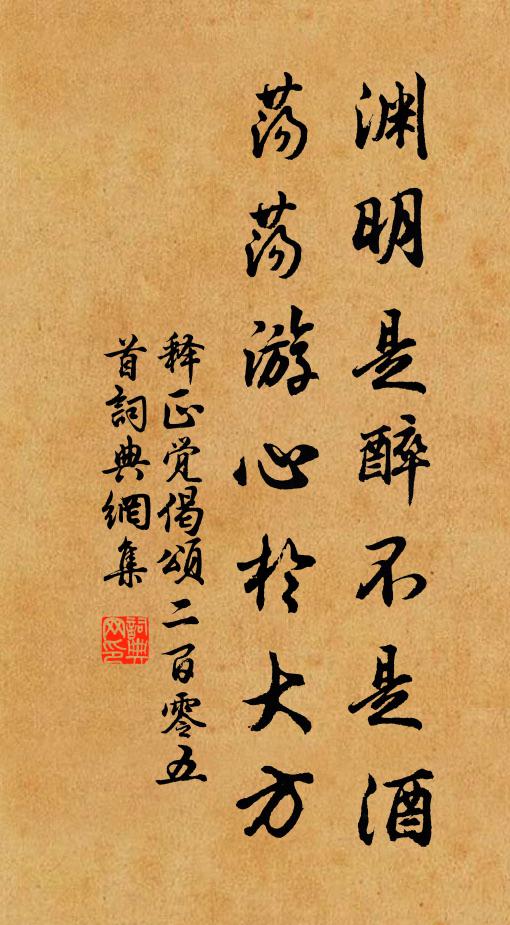 渊明是醉不是酒
荡荡游心於大方
释正觉偈颂二百零五
首詞典網集
詞典
网印